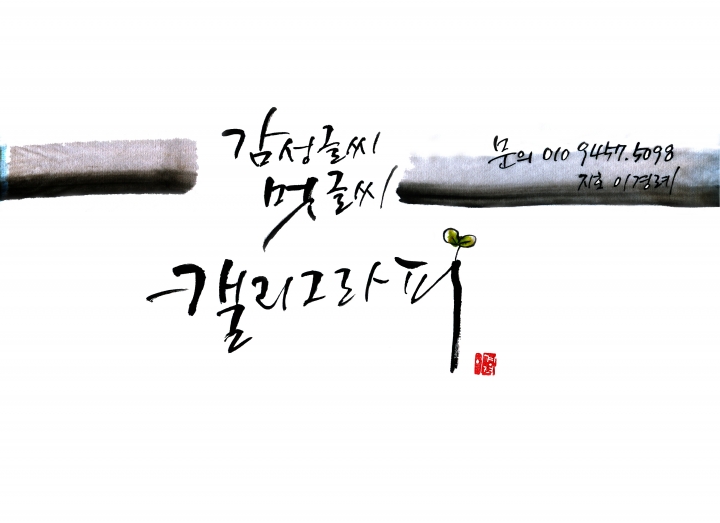 감성글씨
멋글씨
문의 010 9457.5098
지호 이경례
캘리그라피